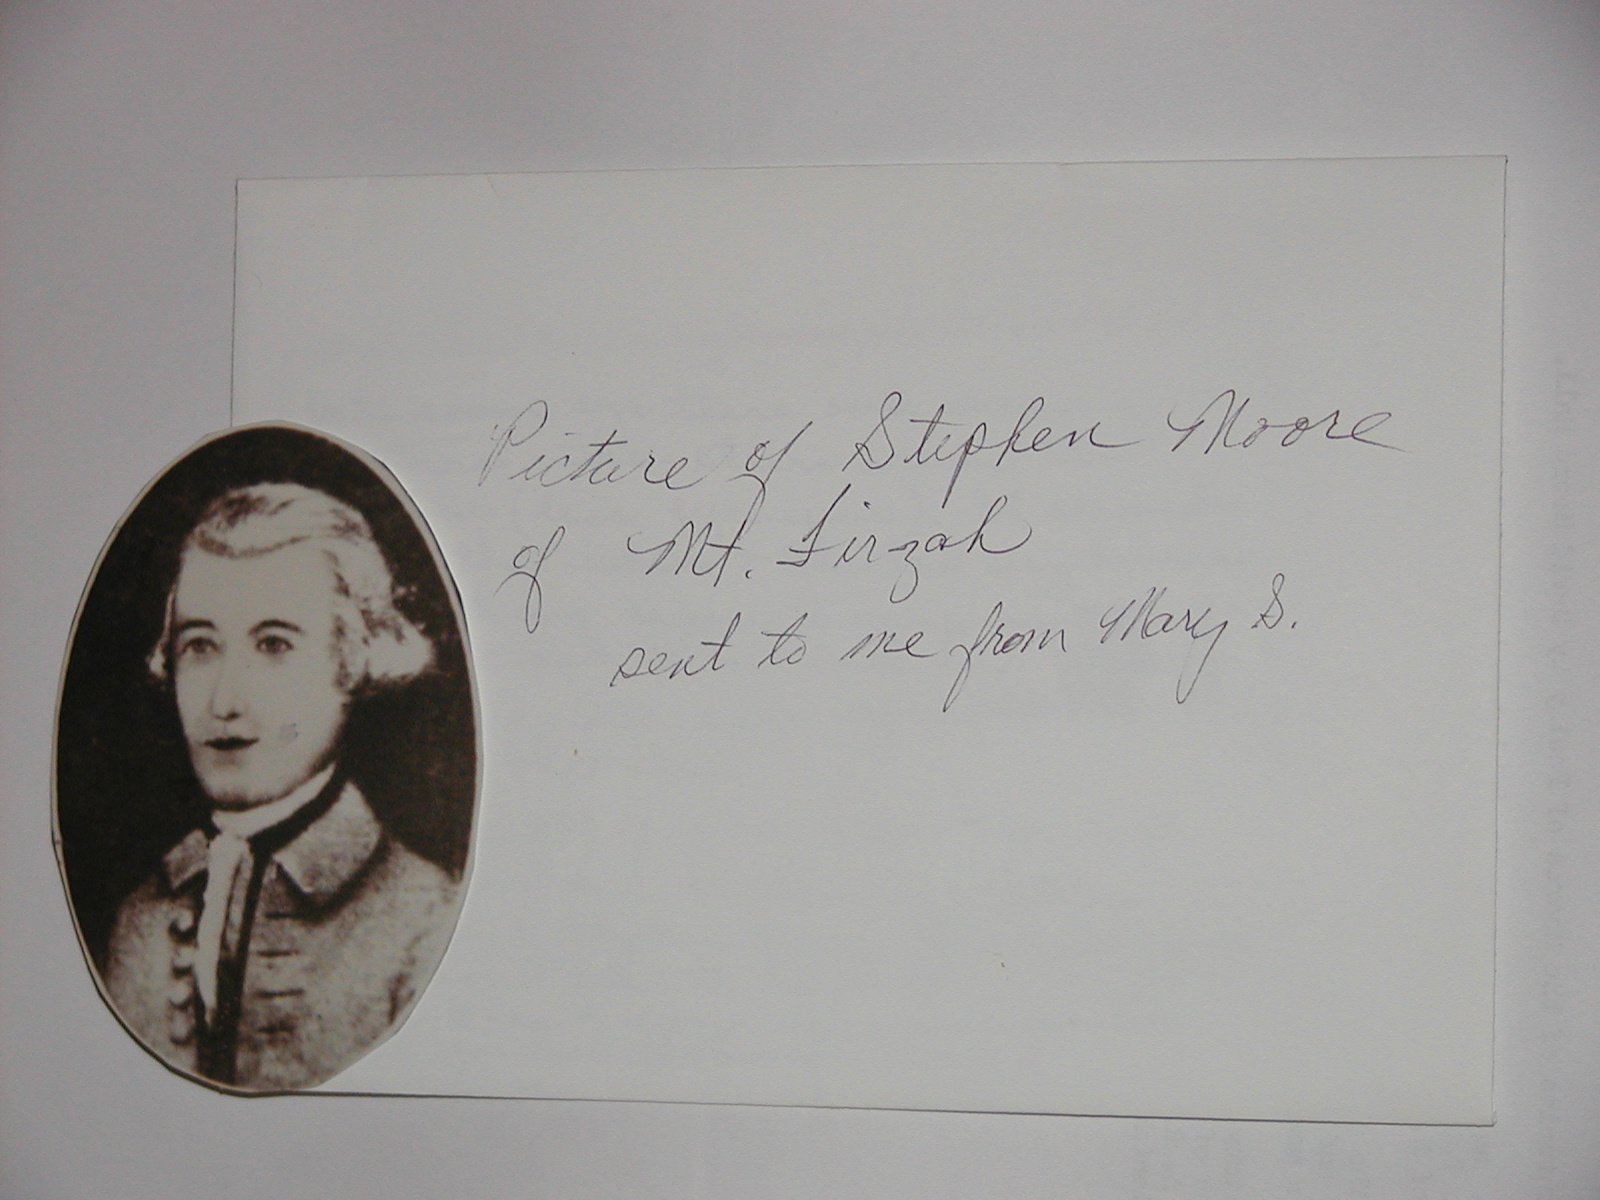 Picture of Stephen Moore
of Mt. Tirzah
sent to me from Mary S.